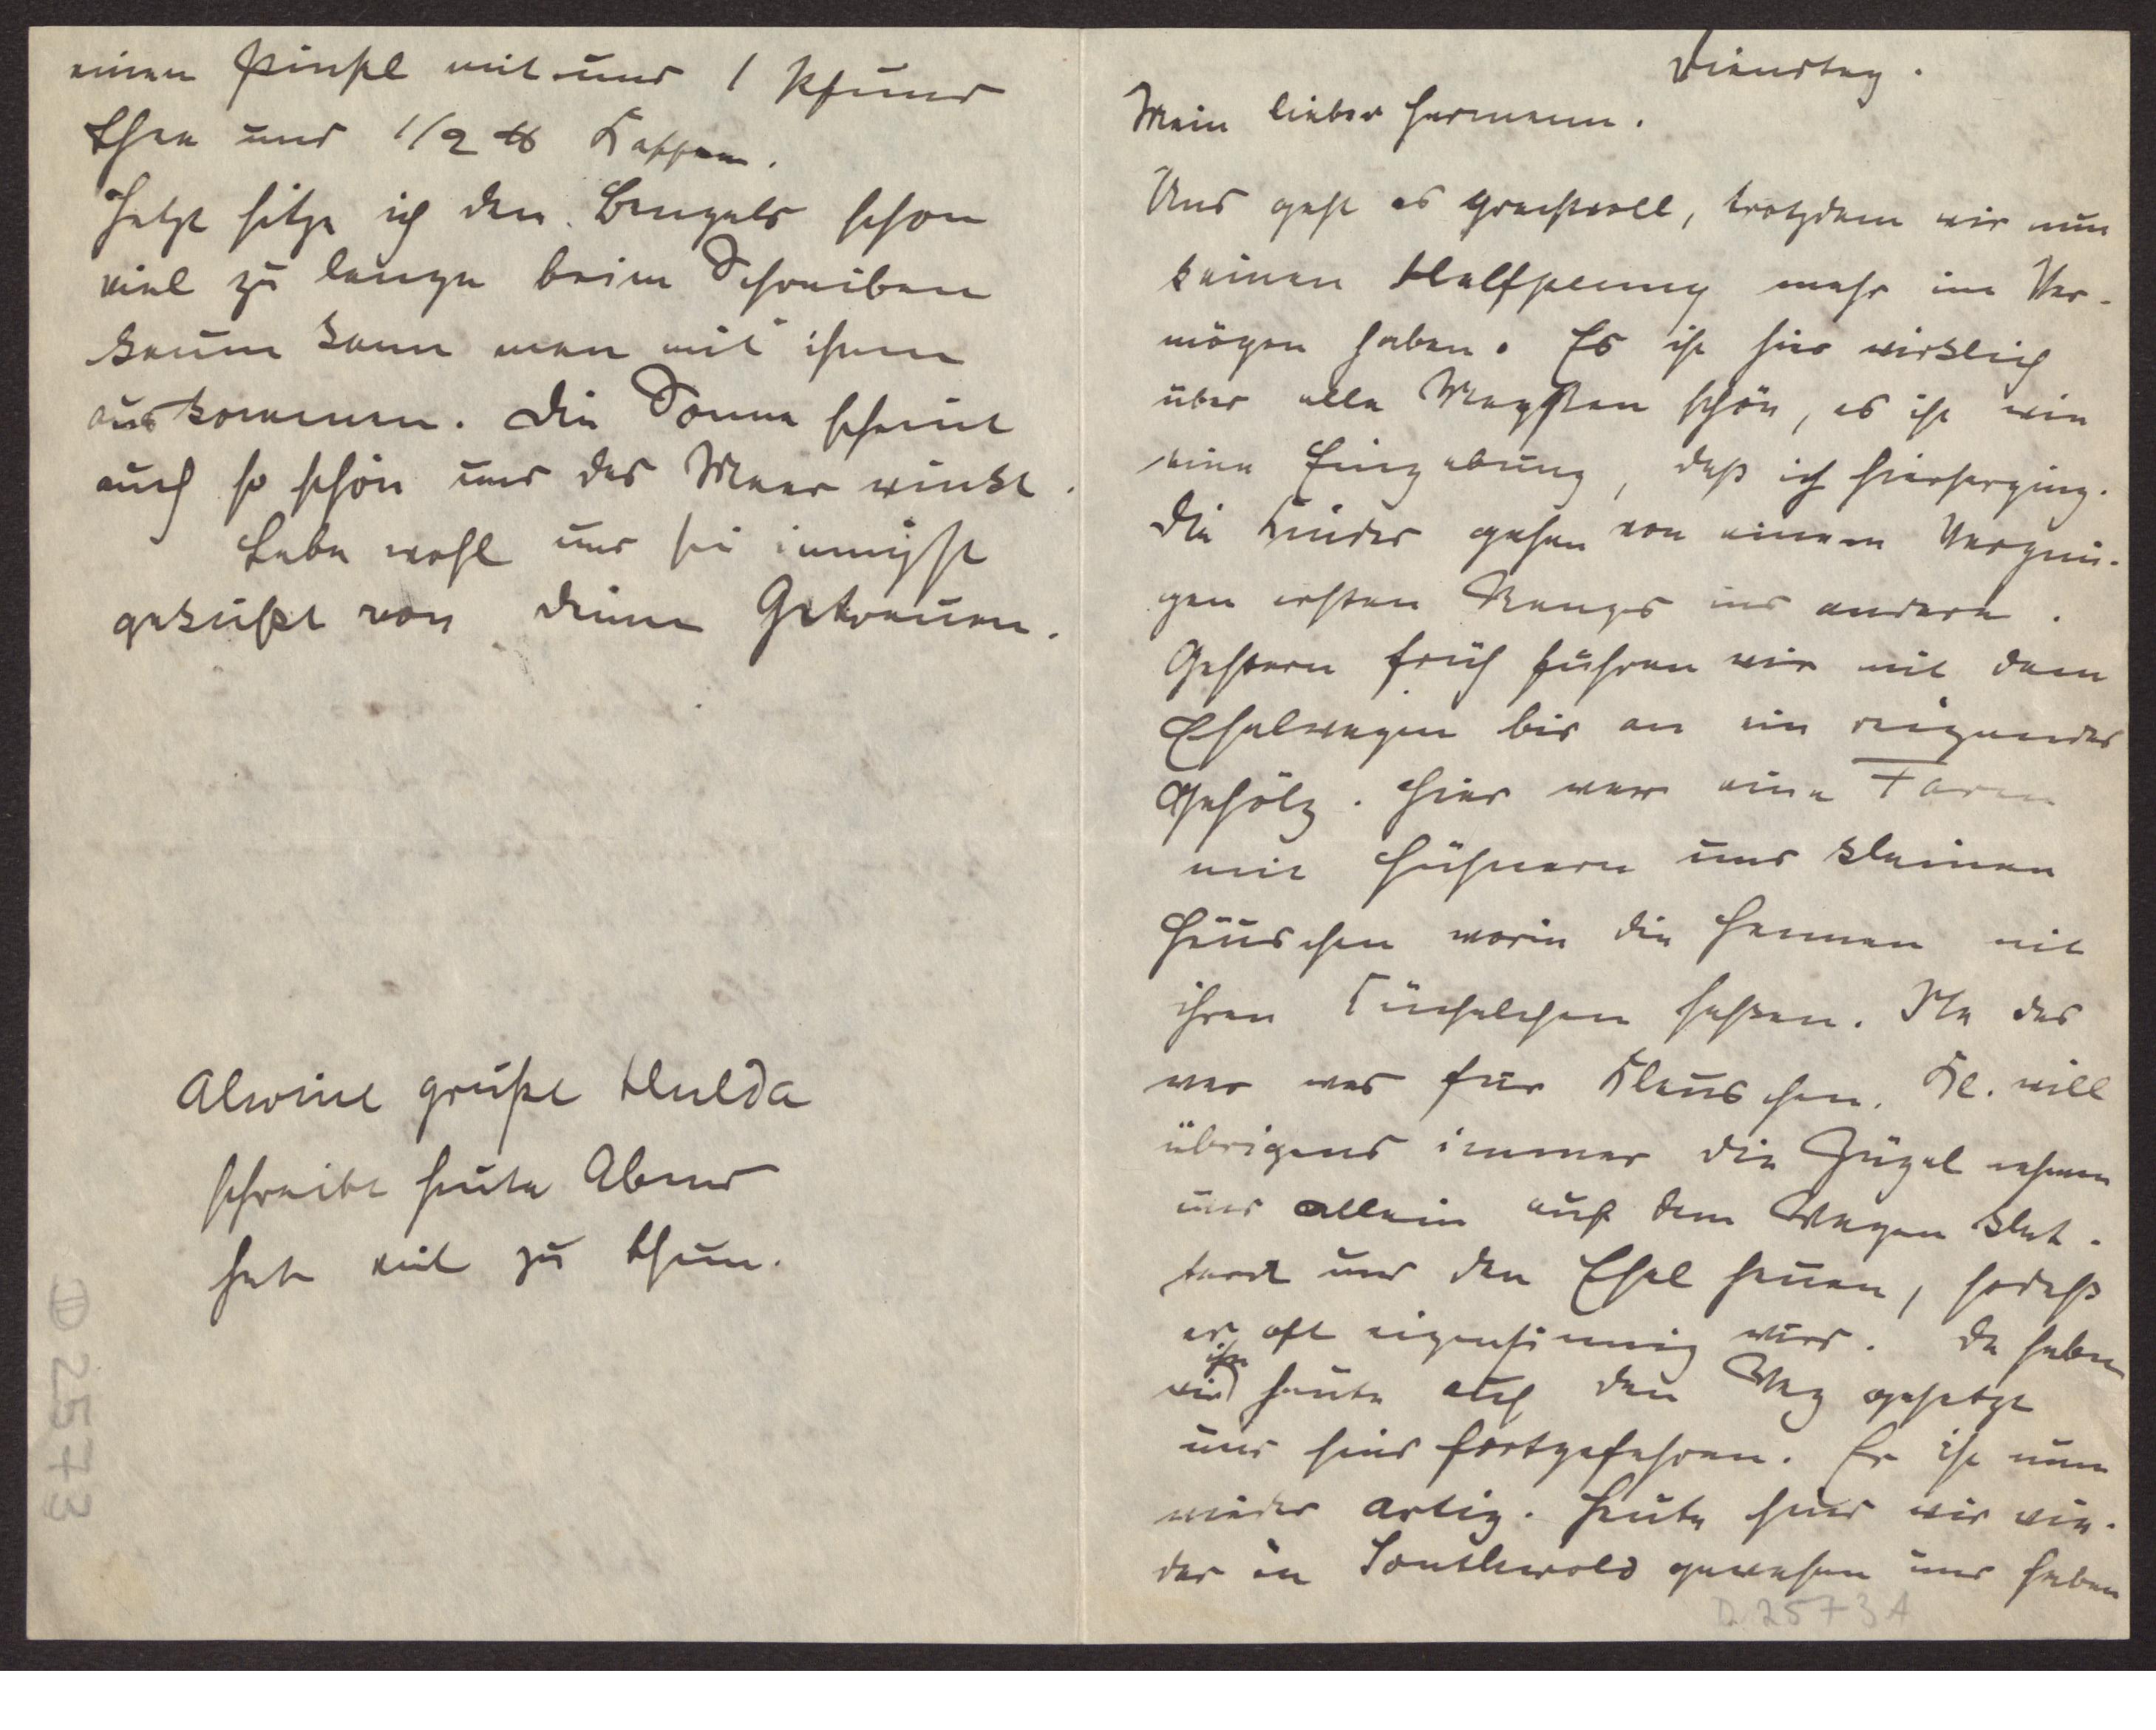 Dienstag.
Mein lieber Hermann.
Uns geht es prachtvoll, trotzdem wir nun
keinen Halfpenny mehr im Ver-
mögen haben. Es ist hier wirklich
über alle Maaßen schön, es ist wie
eine Eingebung, daß ich hierherging.
Die Kinder gehen von einem Vergnü-
gen ersten Ranges ins andere.
Gestern früh fuhren wir mit dem
Eselwagen bis an ein reizendes
Gehölz. Hier war eine Farm
mit Hühnern und kleinen
Häuschen worin die Hennen mit
ihren Küchelchen saßen. Na das
war was für Kläuschen. Kl. will
übrigens immer die Zügel nehmen
und allein auf dem Wagen klet-
tern und den Esel hauen, sodaß
er oft eigensinnig wird. Da haben
wir ihn heute auf den Weg gesetzt
und sind fortgefahren. Er ist nun
wieder artig. Heute sind wir wie-
der in Southwold gewesen und haben
D 2573 A
einen Pinsel mit und 1 Pfund
Thee und 1/2 ℔ Kaffee.
Jetzt sitze ich den Bengels schon
viel zu lange beim Schreiben
kaum kann man mit ihnen
auskommen. Die Sonne scheint
auch so schön und das Meer winkt.
Lebe wohl und sei innigst
geküßt von deinen Getreuen.
Alwine grüße Hulda
schreibt heute Abend
hat viel zu thun.
D 2573